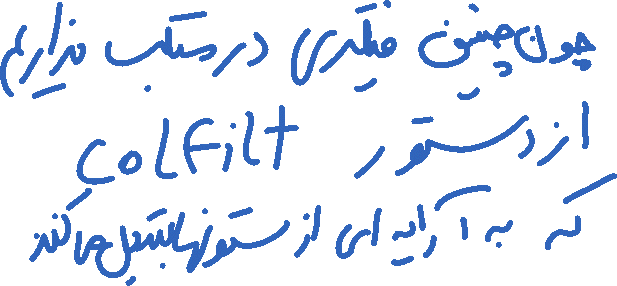 چون چنین فیلتری در متلب نداریم
از دستور colfilt
که به آرایه ای از ستونها تبدیل می کند